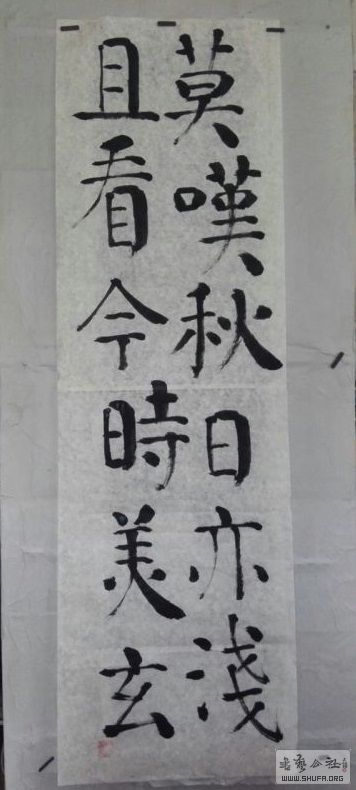 莫嘆秋日亦淺
且看今時美玄
WWW.SHUFA.ORG